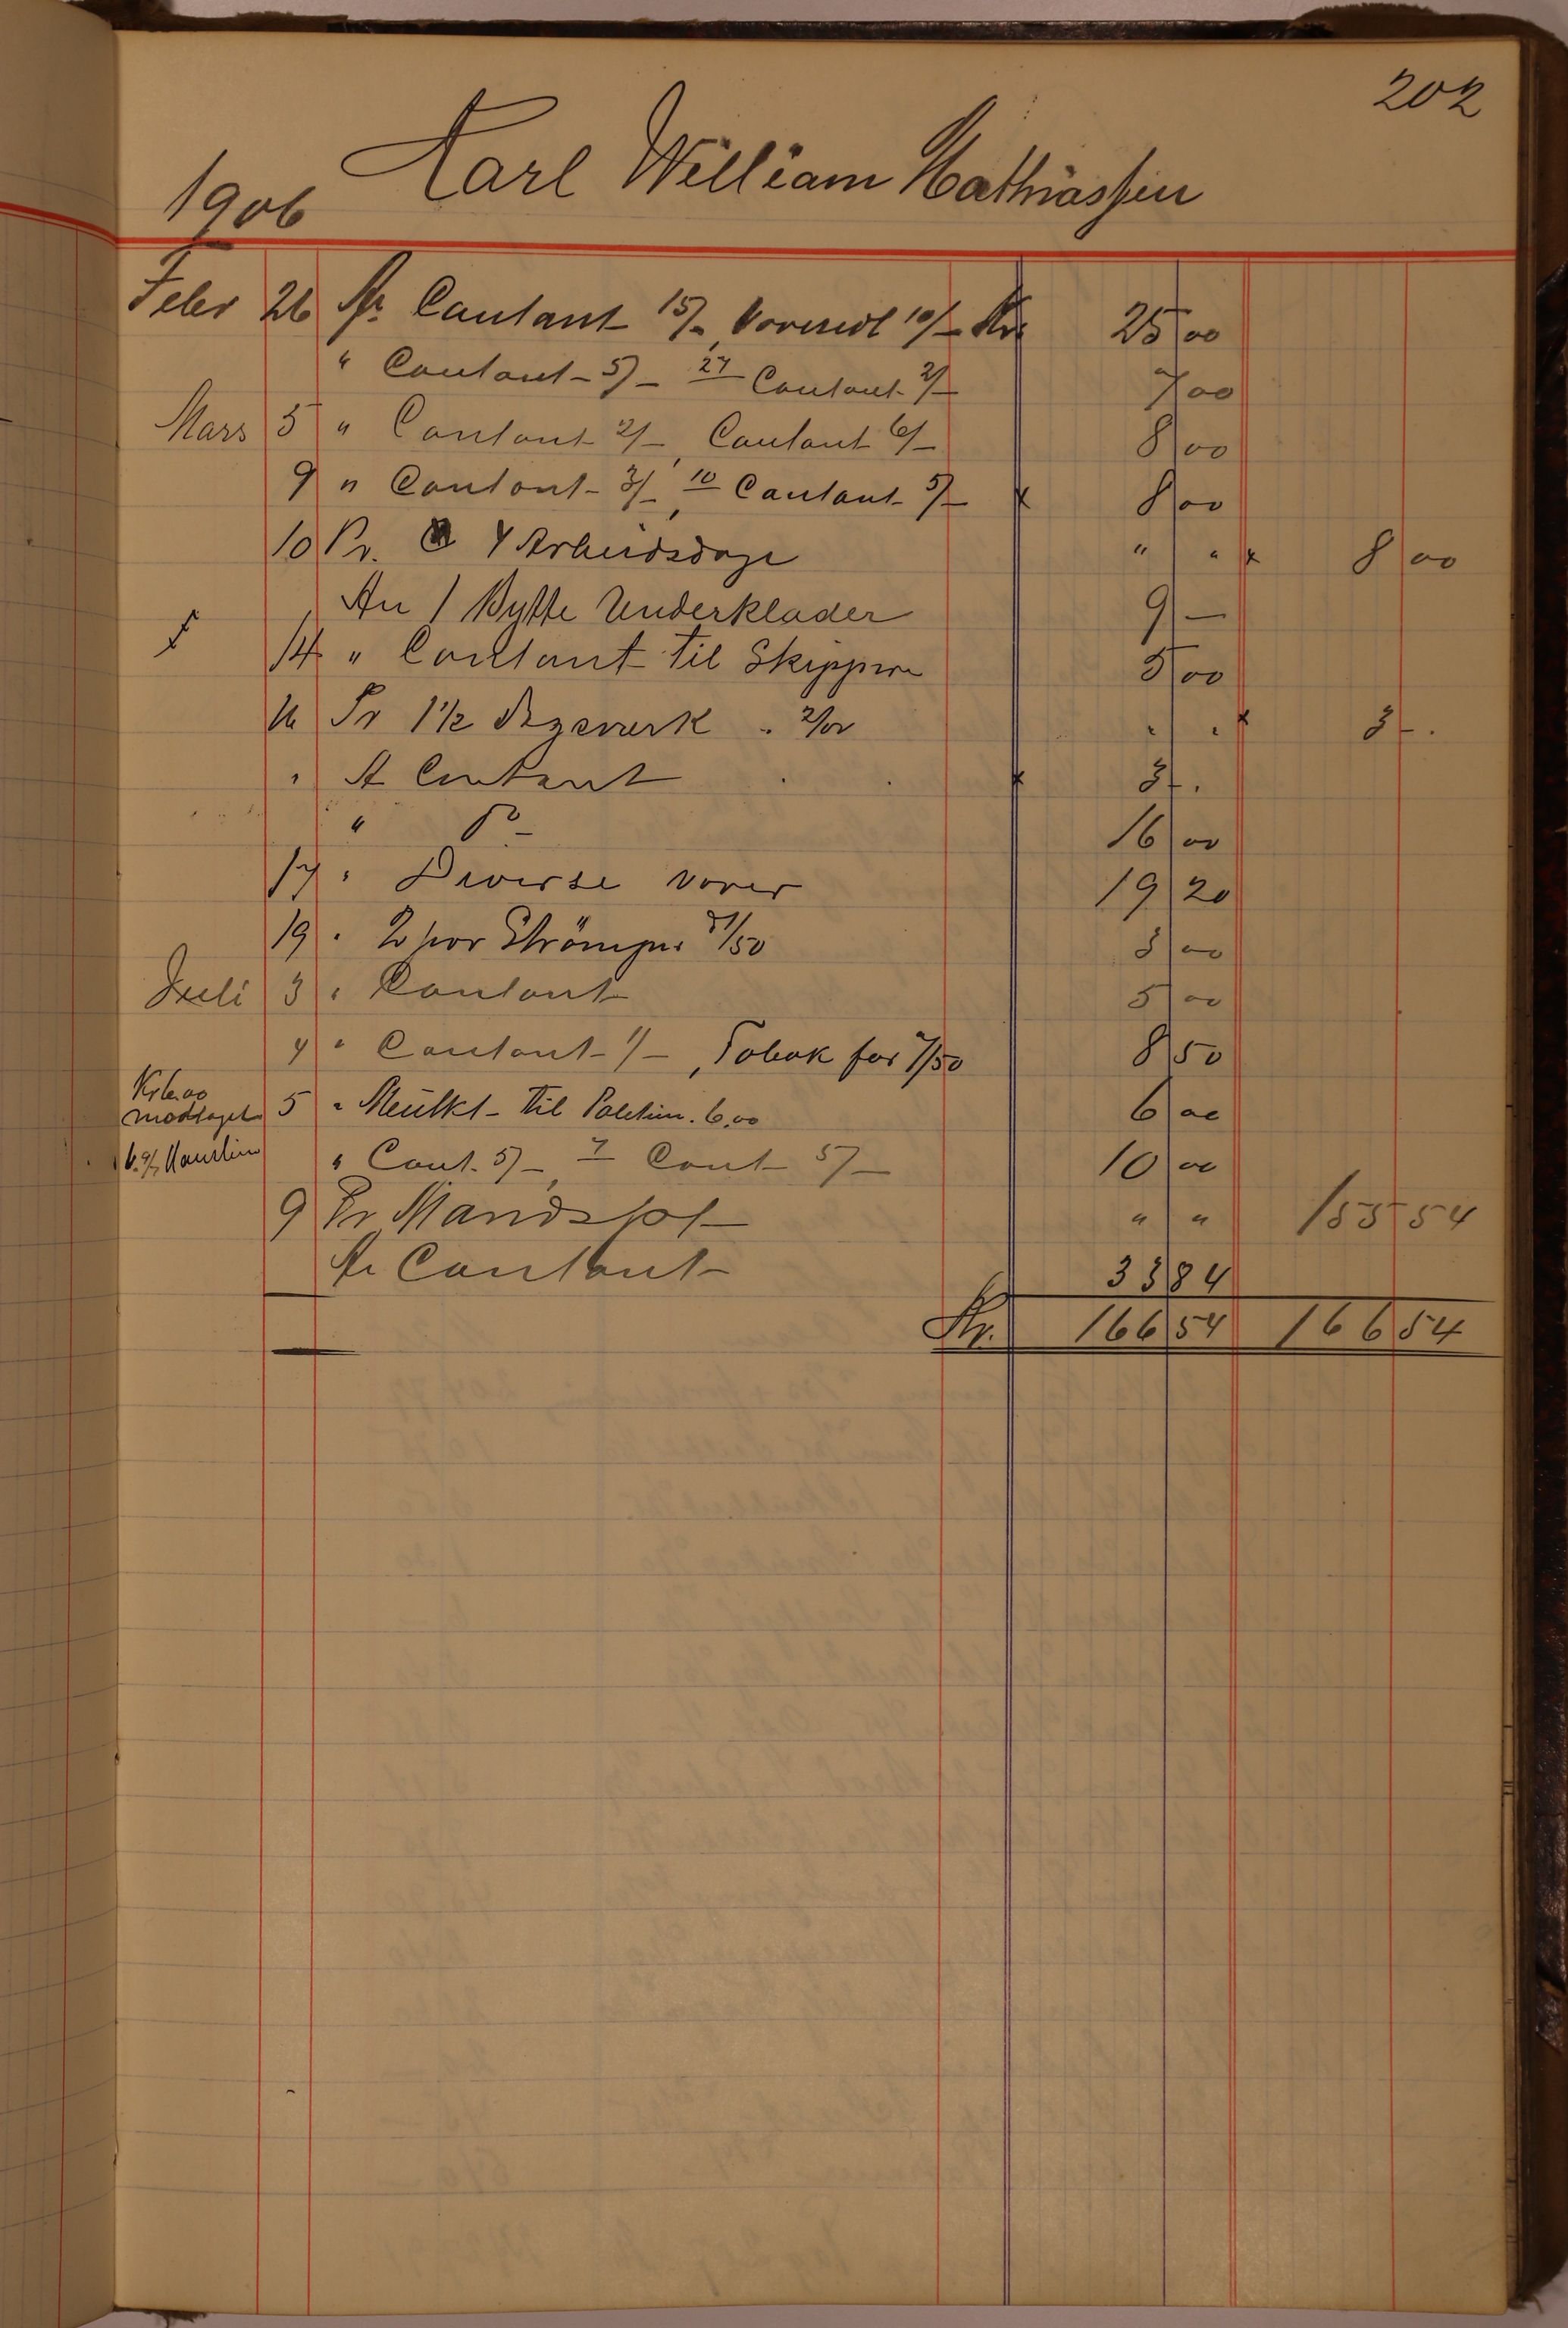 202
1906 Karl William Mathiassen
Febr 26 An Contant 15/-, Vareseil 10/- Kr. 25 00
" Contant - 5/- 27 Contant 2/- 7 00
Mars 5 " Contant 2/-, Contant 6/- 8 00
9 " Contant - 3/-, 10 Contant 5/- x 8 00
10 Pr. 4 Arbeidsdage " " x 8 00
An 1 Bytte Underklæder 9 —
14 " Contant til Skipperen 5 00
16 Pr 1½ Dagsverk . 2/00 " " x 3 -.
" A Contant x 3 -.
" Do 16 00
17 " Diverse varer 19 20
19 " 2 par Strömper 1/50 3 00
Juli 3 " Contant 5 00
4 " Contant 1/-, Tobak for 7/50 8 50
Kr 6.00
modtaget 5 " Mulkt til Politiet. 6.00 6 00
" Cont. 5/-, 7 Cont 5/- 10 00
9 Pr Mandslot " " 155 54
An Contant 33 84
Kr. 166 54 166 54